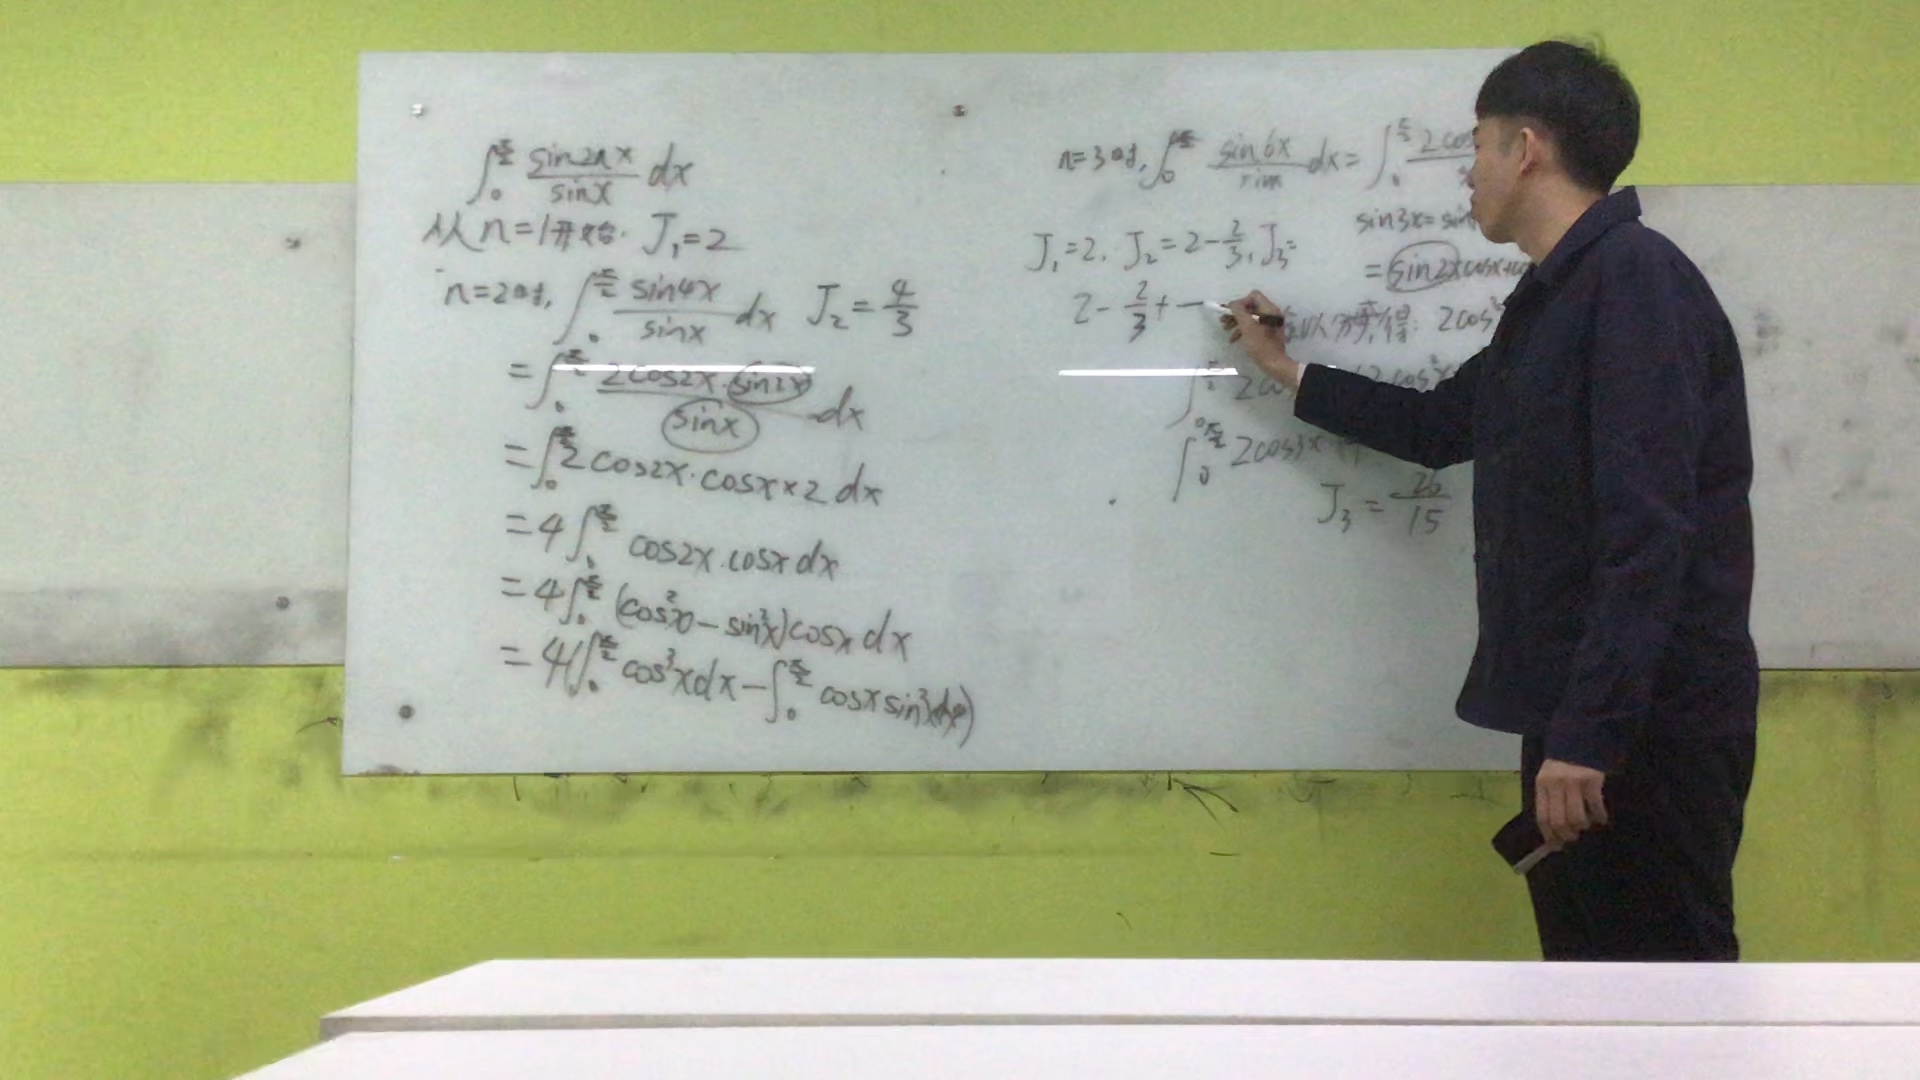 ∫₀^{π/2} sin2nx/sinx dx
从n=1开始. J₁=2
n=2时, ∫₀^{π/2} sin4x/sinx dx J₂=4/3
=∫₀^{π/2} 2cos2x·sin2x/sinx dx
=∫₀^{π/2} 2cos2x·cosx×2 dx
=4∫₀^{π/2} cos2x.cosx dx
=4∫₀^{π/2} (cos²x-sin²x)cosx dx
=4(∫₀^{π/2} cos³xdx-∫₀^{π/2} cosx sin²xdx)
n=3时, ∫₀^{π/2} sin6x/sinx dx=∫₀^{π/2} 2cos
sin3x=sin
J₁=2. J₂=2-2/3, J₃=
=sin2xcosx+co
2-2/3+-
得: 2cos
∫₀^{π/2} 2co
∫₀^{π/2} 2cos3x
J₃=26/15